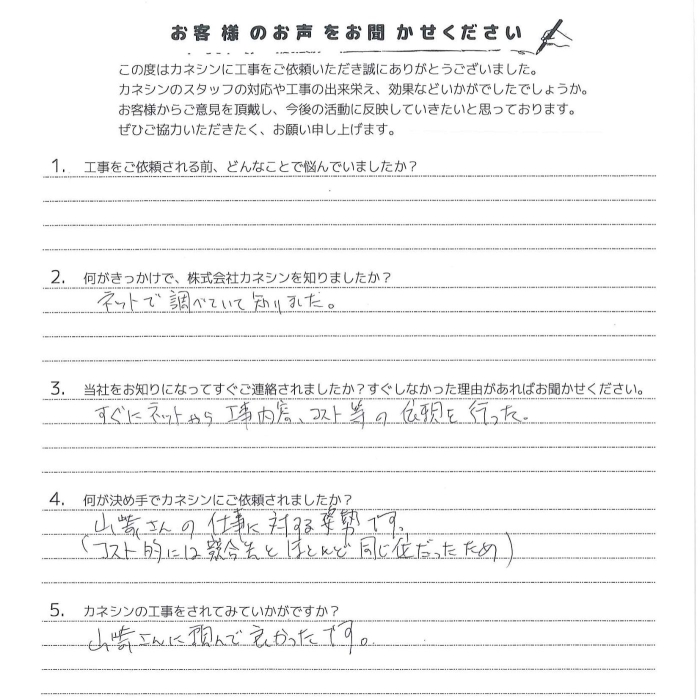 お客様のお声をお聞かせください
この度はカネシンに工事をご依頼いただき誠にありがとうございました。
カネシンのスタッフの対応や工事の出来栄え、効果などいかがでしたでしょうか。
お客様からご意見を頂戴し、今後の活動に反映していきたいと思っております。
ぜひご協力いただきたく、お願い申し上げます。
1. 工事をご依頼される前、どんなことで悩んでいましたか？
2. 何がきっかけで、株式会社カネシンを知りましたか？
ネットで調べていて知りました。
3. 当社をお知りになってすぐご連絡されましたか？すぐしなかった理由があればお聞かせください。
すぐにネットから工事内容、コスト等の依頼を行った。
4. 何が決め手でカネシンにご依頼されましたか？
山崎さんの仕事に対する姿勢です。
(コスト的には競合先とほとんど同じ位だったため)
5. カネシンの工事をされてみていかがですか？
山崎さんに頼んで良かったです。